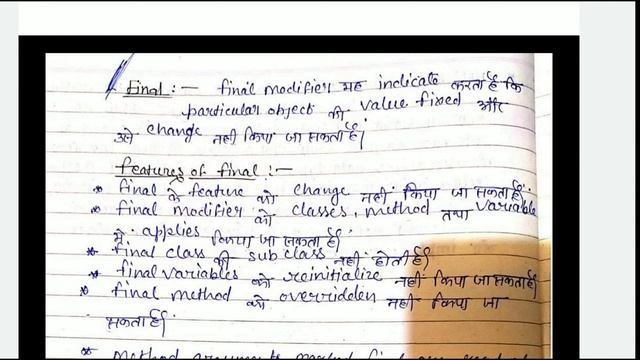 Final :- final modifier यह indicate करता है कि
particular object की value fixed और
उसे change नही किया जा सकता है।
features of final :-
* final के feature को change नहीं किया जा सकता है।
* final modifier को classes, method तथा variable
मे applies किया जा सकता है।
* final class की sub class नहीं होती है।
* final variables को reinitialize नहीं किया जा सकता है।
* final method को overridden नहीं किया जा
सकता है।
* method arguments marked final are